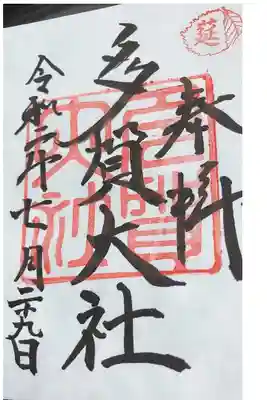 莚
奉拝
多賀大社
令和元年七月二十九日